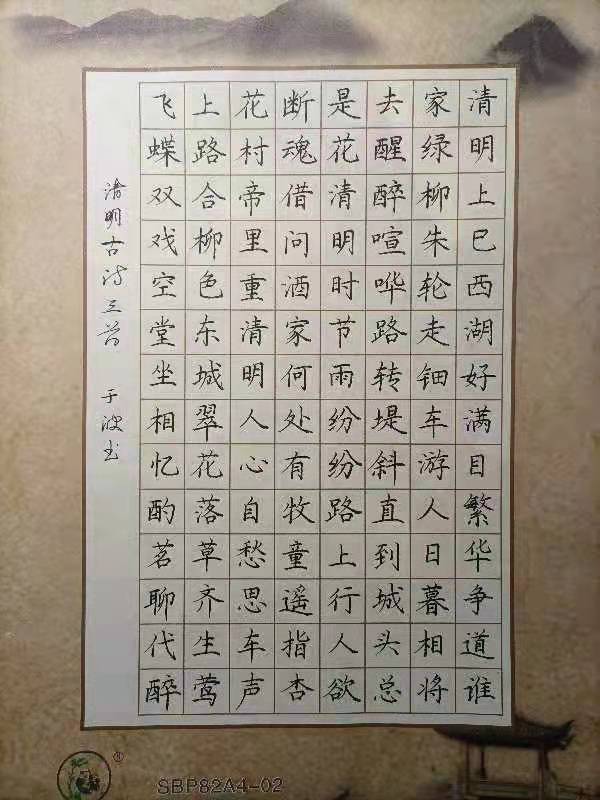 清明上巳西湖好满目繁华争道谁
家绿柳朱轮走钿车游人日暮相将
去醒醉喧哗路转堤斜直到城头总
是花清明时节雨纷纷路上行人欲
断魂借问酒家何处有牧童遥指杏
花村帝里重清明人心自愁思车声
上路合柳色东城翠花落草齐生莺
飞蝶双戏空堂坐相忆酌茗聊代醉
清明古诗三首 于波书
®
SBP82A4-02